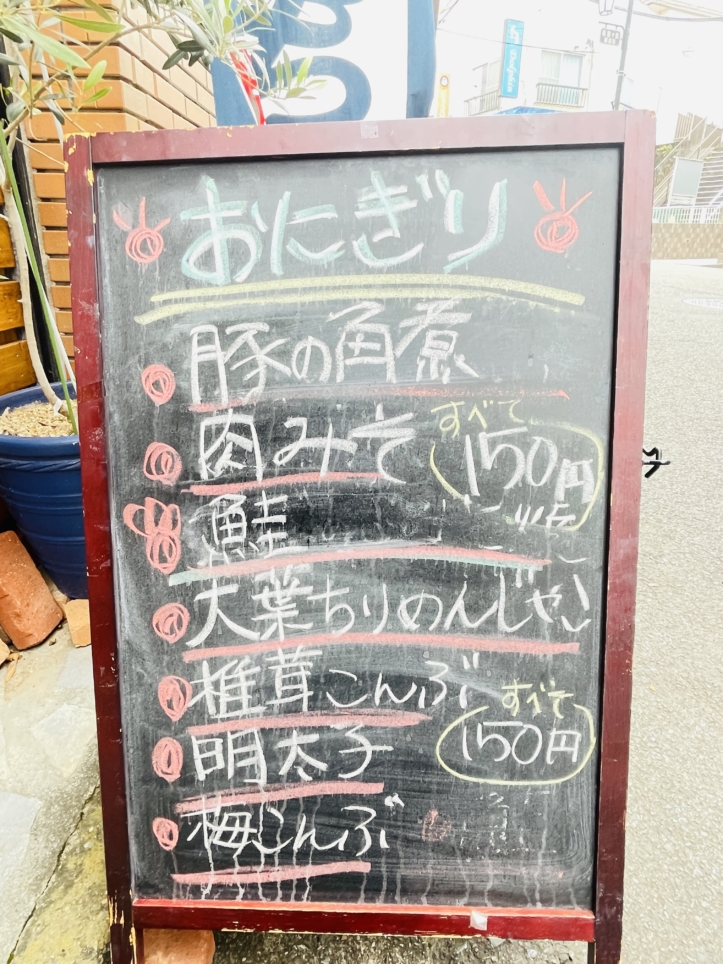 おにぎり
豚の角煮
すべて
肉みそ
150円
鮭
大葉ちりめんじゃこ
椎茸こんぶ
すべて
明太子
150円
梅こんぶ